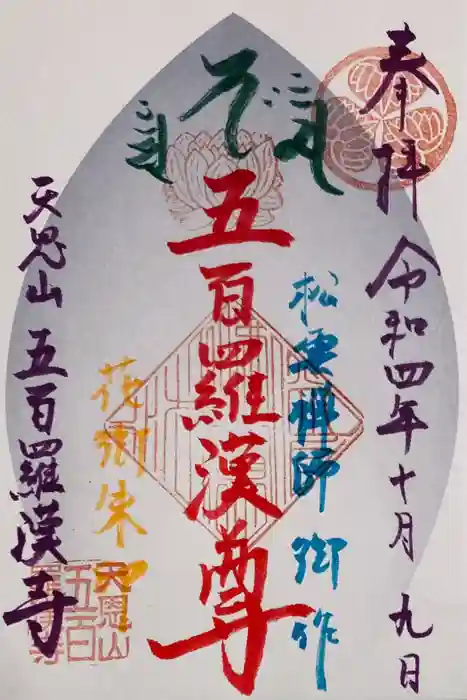 奉拝 令和四年十月九日
松雲禅師 御作
五百羅漢尊
花御朱印
天恩山 五百羅漢寺
天恩山
五百
羅漢寺